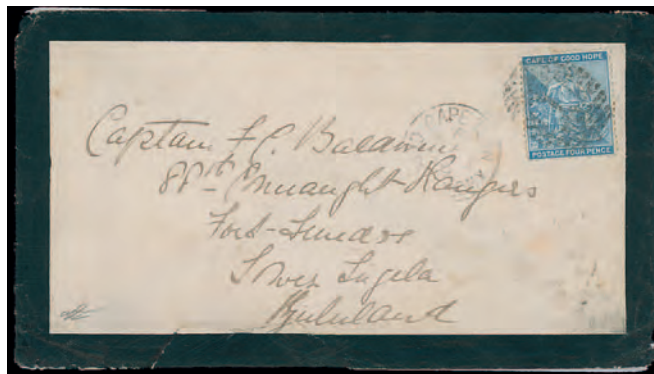 CAPE OF GOOD HOPE
POSTAGE FOUR PENCE
CAPE
Captain F C. Baldwin
88th Connaught Rangers
Fort
Lower Tugela
Zululand